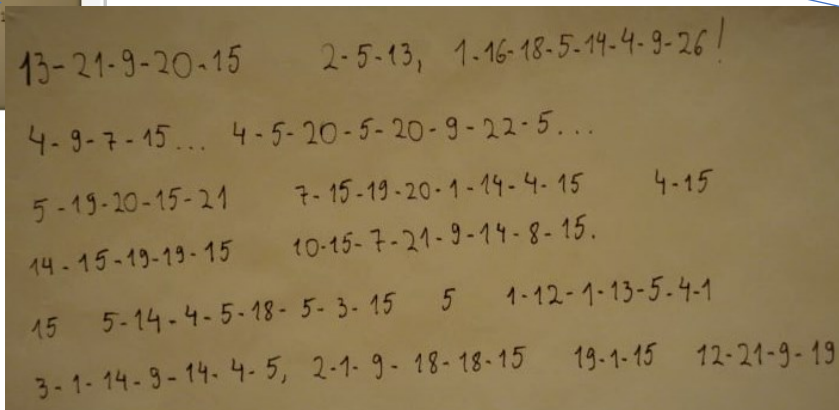 13-21-9-20-15 2-5-13, 1-16-18-5-14-4-9-26!
4-9-7-15... 4-5-20-5-20-9-22-5...
5-19-20-15-21 7-15-19-20-1-14-4-15 4-15
14-15-19-19-15 10-15-7-21-9-14-8-15.
15 5-14-4-5-18-5-3-15 5 1-12-1-13-5-4-1
3-1-14-9-14-4-5, 2-1-9-18-18-15 19-1-15 12-21-9-19